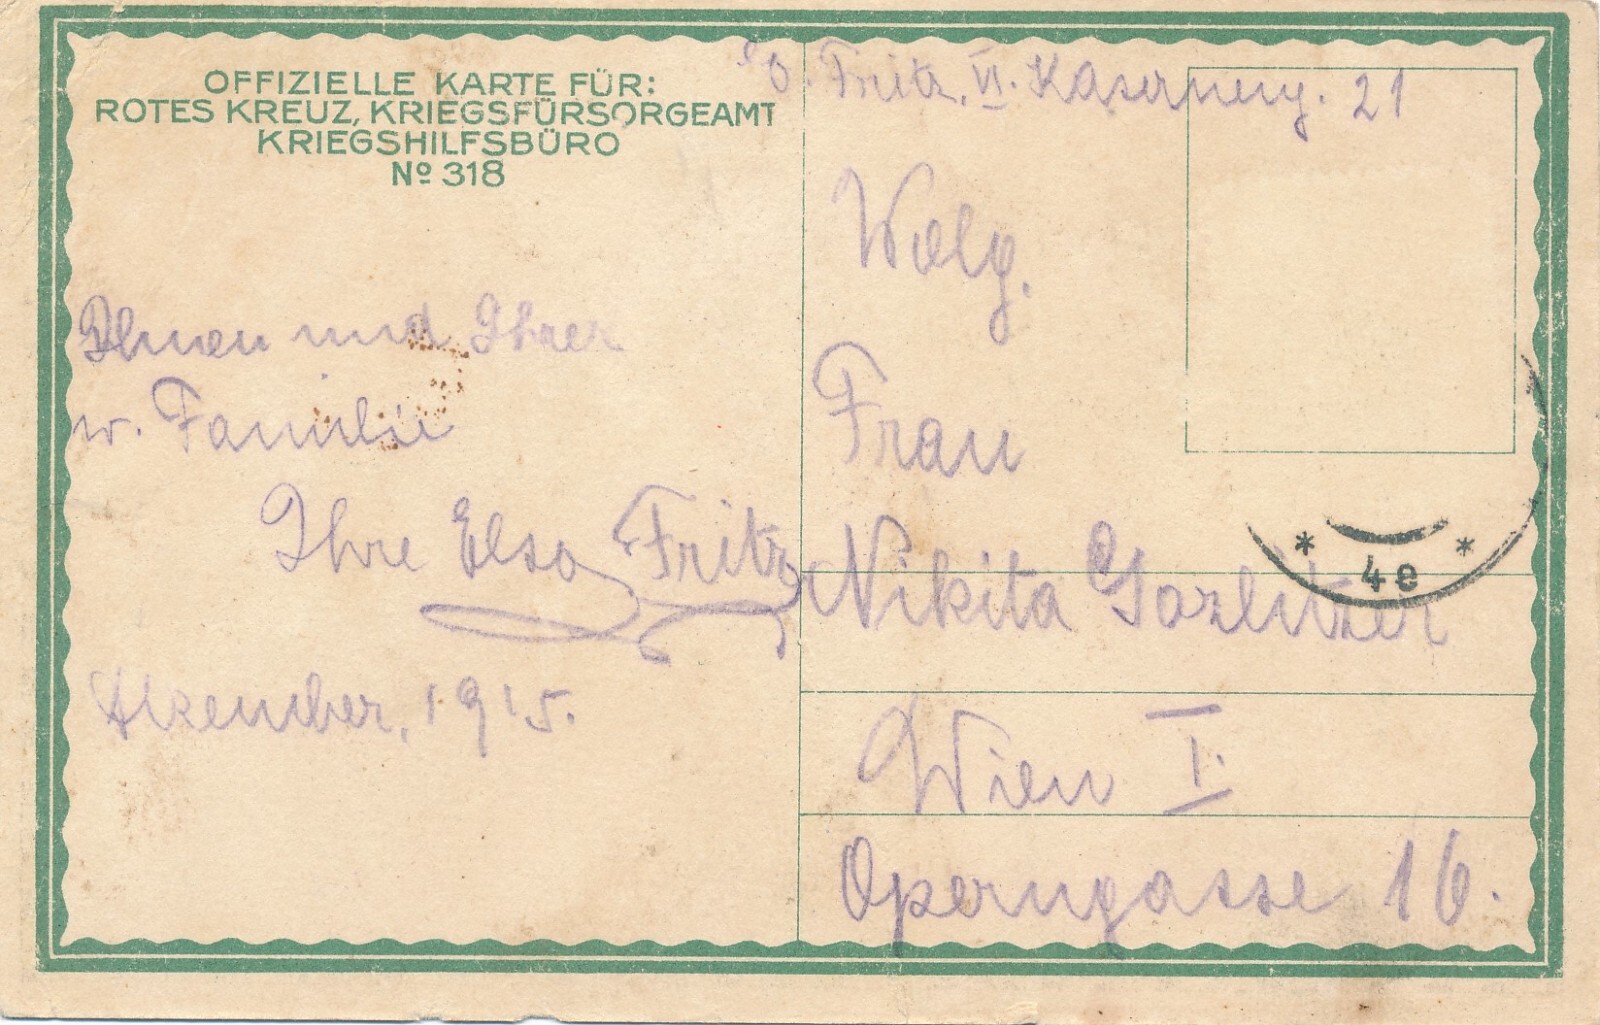 OFFIZIELLE KARTE FÜR:
ROTES KREUZ, KRIEGSFÜRSORGEAMT
KRIEGSHILFSBÜRO
Nº 318
Fritz, VI. Kaserneng. 21
Ihnen und Ihrer
w. Familie
Ihre Elsa Fritz
Dezember, 1915.
Wolg.
Frau
Nikita Gozlitzer
Wien I.
Operngasse 16.
* 4e *